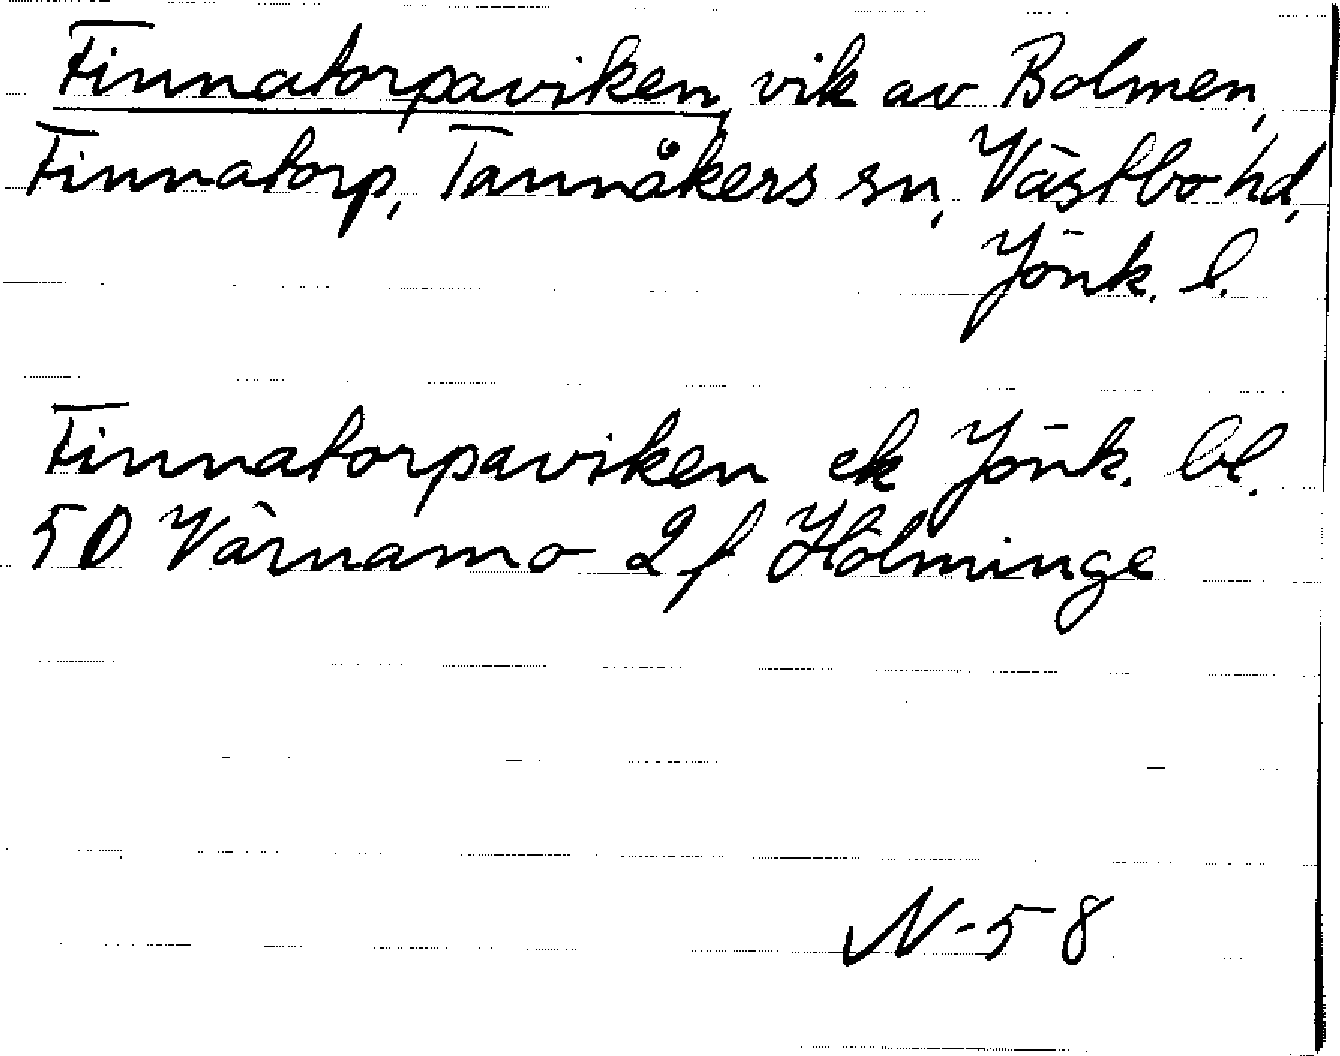 Finnatorpaviken, vik av Bolmen,
Finnatorp, Tannåkers sn, Västbo hd,
Jönk. l.
Finnatorpaviken ek Jönk. bl.
5D Värnamo 2f Hölminge
N-58